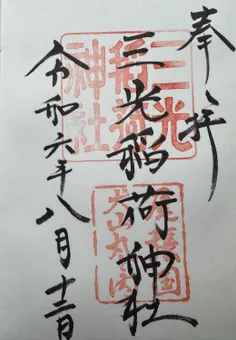 奉拝
三光稲荷神社
令和六年八月十二日
三光
稲荷
神社